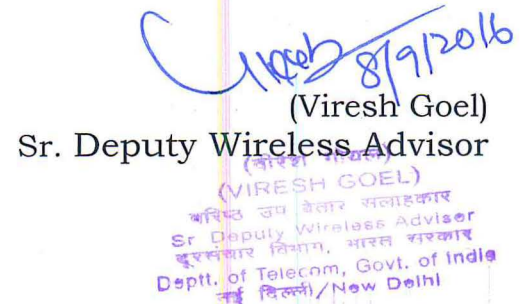 8/9/2016
(Viresh Goel)
Sr. Deputy Wireless Advisor
(वीरेश गोयल)
(VIRESH GOEL)
वरिष्ठ उप बेतार सलाहकार
Sr Deputy Wireless Adviser
दूरसंचार विभाग, भारत सरकार
Deptt. of Telecom, Govt. of India
नई दिल्ली/New Delhi